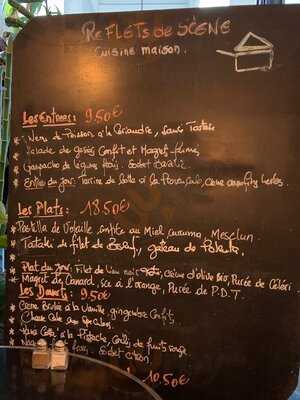 REFLETS de SCÈNE
Cuisine maison.
Les Entrées: 9.50€
* Nem de Poisson à la Coriandre, sauce Tartare
* Salade de gésiers Confit et Magret fumé
* Gaspacho de légumes frais. Sorbet
* Entrée du jour: Terrine de lotte à la Provençale, crème aux fines herbes
Les Plats: 18.50€
* Pastilla de Volaille, confite au Miel curcuma, Mesclun.
* Tataki de filet de Boeuf, gâteau de Polenta,
* Plat du jour: Filet de Lieu noir, Crème d'olive Bio, Purée de Céleri.
* Magret de Canard, sce à l'orange, Purée de P.D.T.
Les Desserts: 9.50€
* Crème Brûlée à la Vanille, gingembre Confit,
* Cheese Cake aux Speculoos
* Panna Cotta à la Pistache, Coulis de fruits rouge
* frais. Sorbet citron.
10.50€